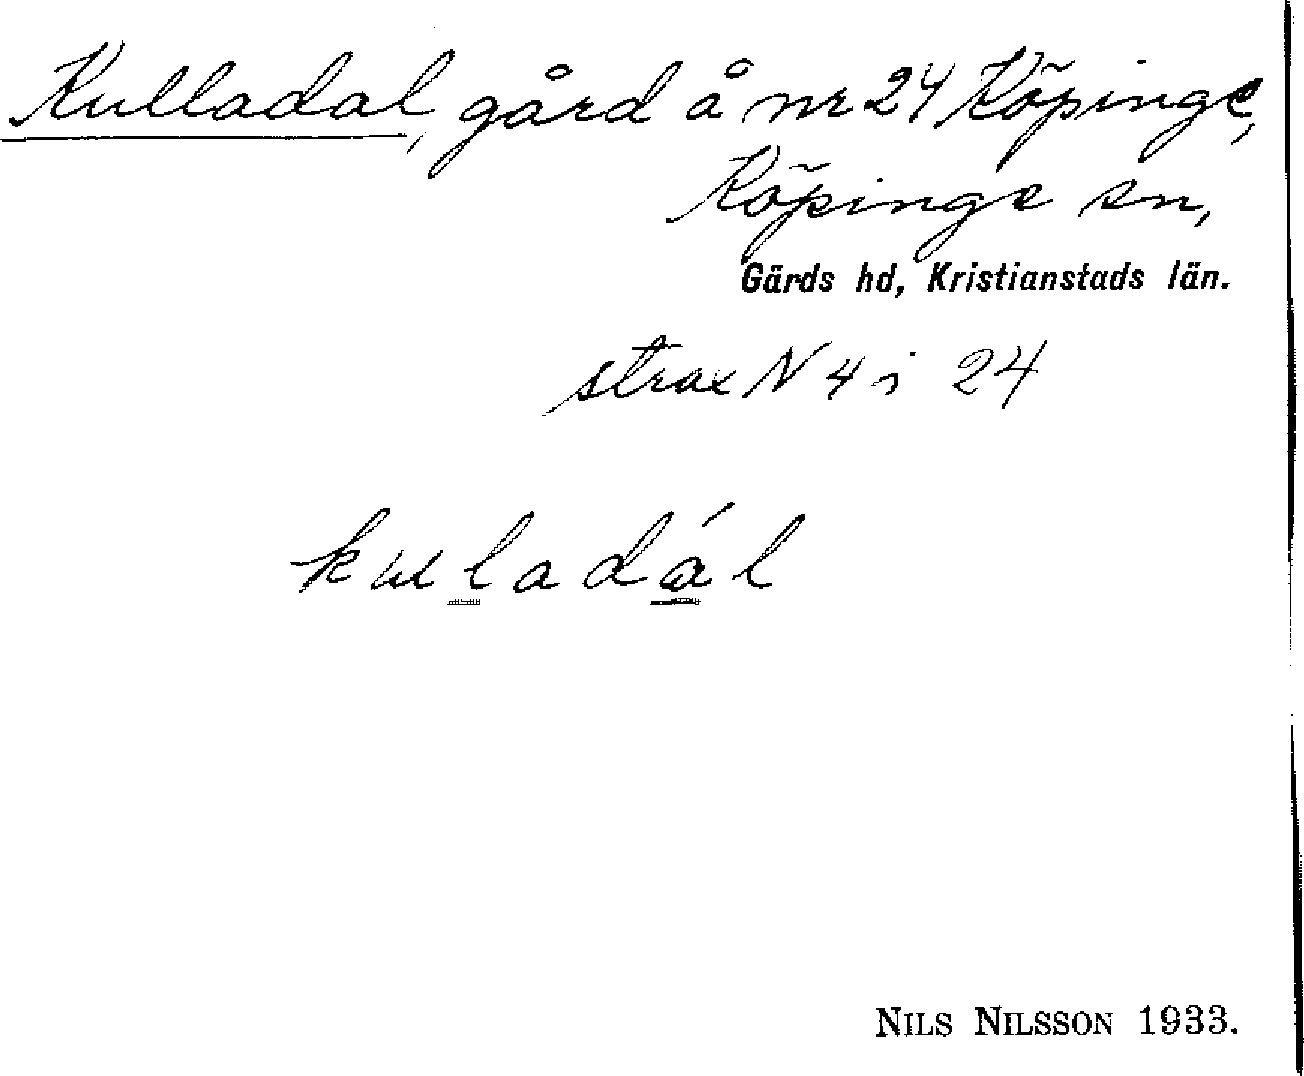 Kulladal, gård å nr 24 Köpinge,
Köpinge sn,
Gärds hd, Kristianstads län.
strax N 4 i 24
kuladál
NILS NILSSON 1933.